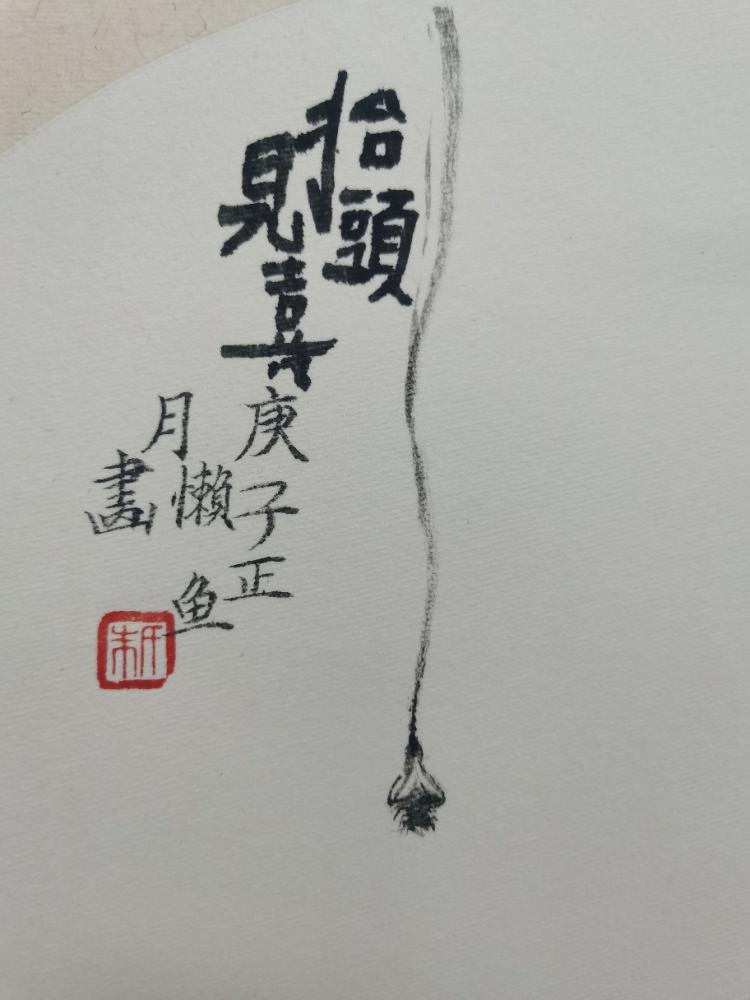 抬頭
見喜
庚子正
月懶鱼
畫